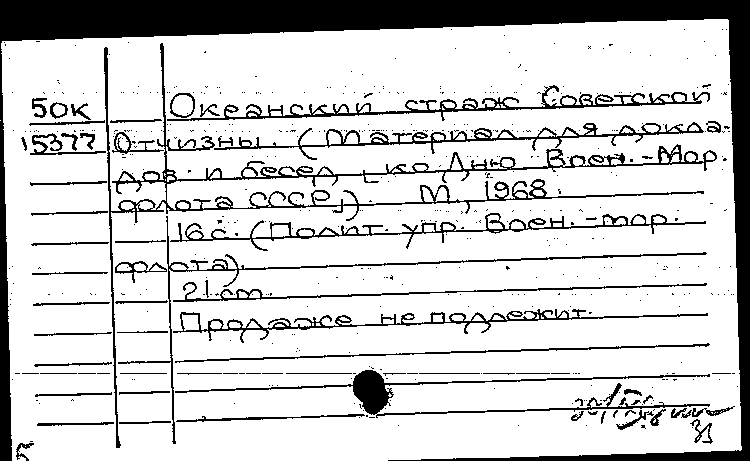 50К Океанский страж Советской
15377 Отчизны. (Материал для докла-
дов и бесед [ко Дню Воен.-Мор.
флота СССР]). М., 1968.
16 с. (Полит. упр. Воен.-мор.
флота).
21 cm.
Продаже не подлежит.